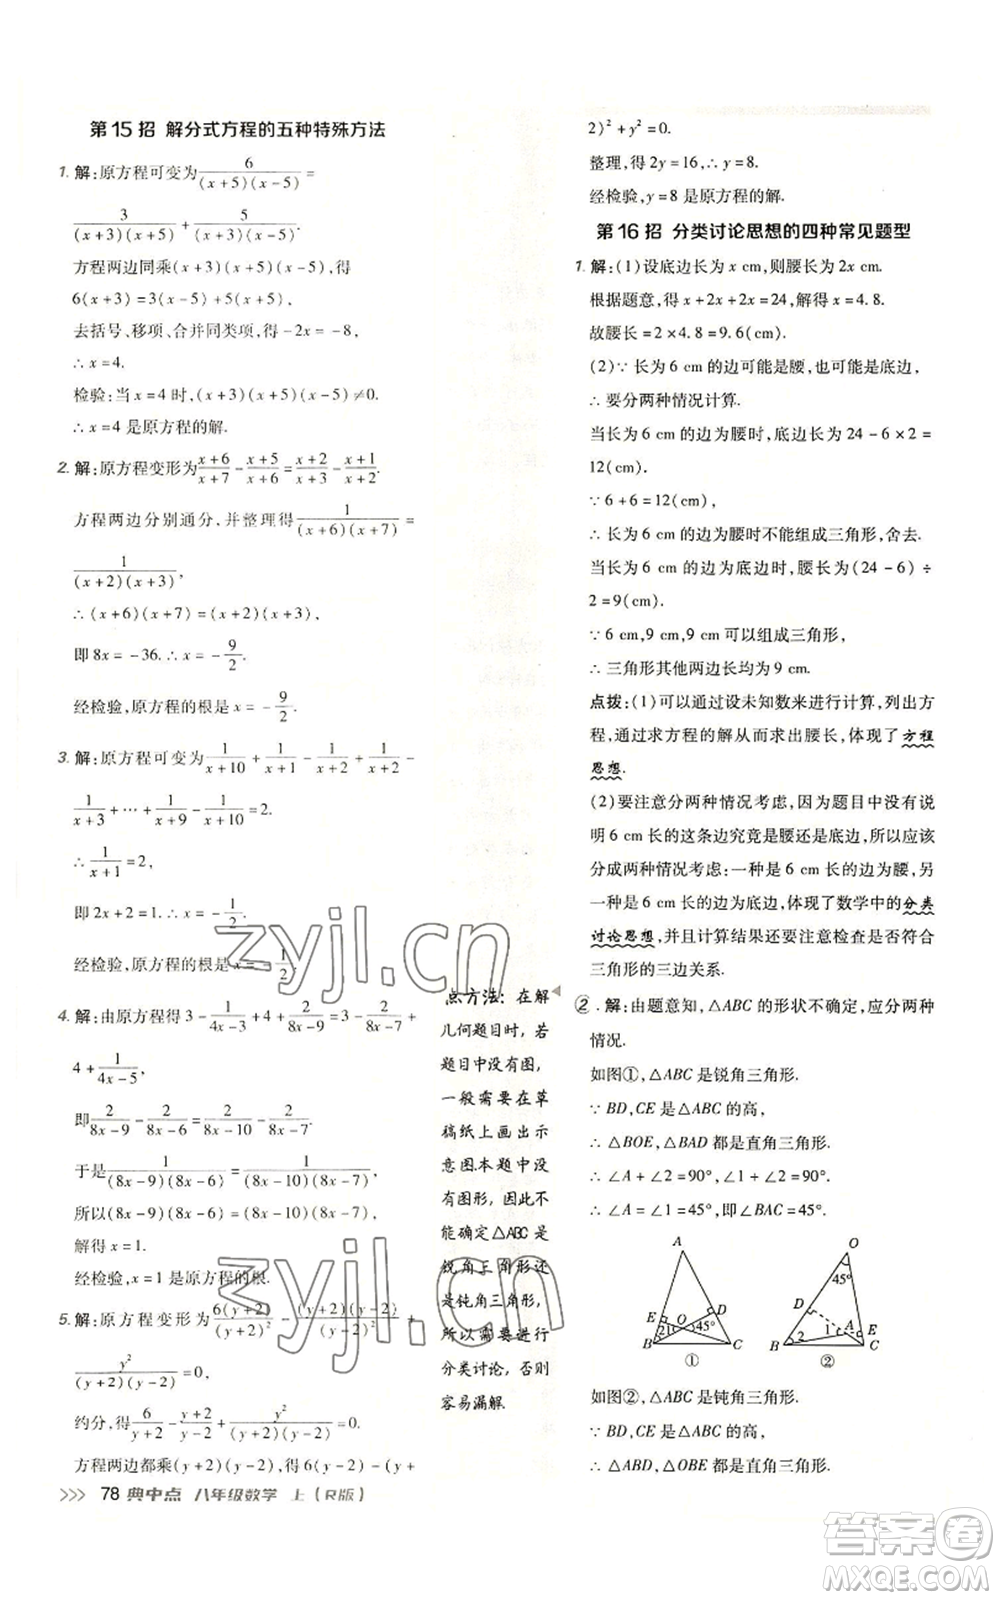 第15招 解分式方程的五种特殊方法
1. 解:原方程可变为6/((x+5)(x-5))=
3/((x+3)(x+5))+5/((x+3)(x-5)).
方程两边同乘(x+3)(x+5)(x-5),得
6(x+3)=3(x-5)+5(x+5),
去括号、移项、合并同类项,得-2x=-8,
∴x=4.
检验:当x=4时,(x+3)(x+5)(x-5)≠0.
∴x=4是原方程的解.
2. 解:原方程变形为(x+6)/(x+7)-(x+5)/(x+6)=(x+2)/(x+3)-(x+1)/(x+2).
方程两边分别通分,并整理得1/((x+6)(x+7))=
1/((x+2)(x+3)),
∴(x+6)(x+7)=(x+2)(x+3),
即8x=-36.∴x=-9/2.
经检验,原方程的根是x=-9/2.
3. 解:原方程可变为1/(x+10)+1/(x+1)-1/(x+2)+1/(x+2)-
1/(x+3)+…+1/(x+9)-1/(x+10)=2,
∴1/(x+1)=2,
即2x+2=1.∴x=-1/2.
经检验,原方程的根是x=-1/2.
4. 解:由原方程得3-1/(4x-3)+4+2/(8x-9)=3+2/(8x-7)+
4+1/(4x-5),
即2/(8x-9)-2/(8x-6)=2/(8x-10)-2/(8x-7).
于是1/((8x-9)(8x-6))=1/((8x-10)(8x-7)),
所以(8x-9)(8x-6)=(8x-10)(8x-7).
解得x=1.
经检验,x=1是原方程的根.
5. 解:原方程变形为6(y+2)/(y+2)²-(y+2)(y-2)/(y-2)²+
y²/((y+2)(y-2))=0,
约分,得6/(y+2)-(y+2)/(y-2)+y²/((y+2)(y-2))=0.
方程两边都乘(y+2)(y-2),得6(y-2)-(y+
点方法:在解
几何题目时,若
题目中没有图,
一般需要在草
稿纸上画出示
意图本题中没
有图形,因此不
能确定△ABC是
锐角三角形还
是钝角三角形,
所以需要进行
分类讨论,否则
容易漏解.
2)²+y²=0.
整理,得2y=16,∴y=8.
经检验,y=8是原方程的解.
第16招 分类讨论思想的四种常见题型
1. 解:(1)设底边长为x cm,则腰长为2x cm.
根据题意,得x+2x+2x=24,解得x=4.8.
故腰长=2×4.8=9.6(cm).
(2)∵长为6 cm的边可能是腰,也可能是底边,
∴要分两种情况计算.
当长为6 cm的边为腰时,则底边长为24-6×2=
12(cm).
∵6+6=12(cm),
∴长为6 cm的边为腰时不能组成三角形,舍去.
当长为6 cm的边为底边时,腰长为(24-6)÷
2=9(cm).
∵6 cm,9 cm,9 cm可以组成三角形,
∴三角形其他两边长均为9 cm.
点拨:(1)可以通过设未知数来进行计算,列出方
程,通过求方程的解从而求出腰长,体现了方程
思想.
(2)要注意分两种情况考虑,因为题目中没有说
明6 cm长的这条边究竟是腰还是底边,所以应该
分成两种情况考虑:一种是6 cm长的边为腰,另
一种是6 cm长的边为底边,体现了数学中的分类
讨论思想,并且计算结果还要注意检查是否符合
三角形的三边关系.
②. 解:由题意知,△ABC的形状不确定,应分两种
情况.
如图①,△ABC是锐角三角形.
∵BD,CE是△ABC的高,
∴△BOE,△BAD都是直角三角形.
∴∠A+∠2=90°,∠1+∠2=90°.
∴∠A=∠1=45°,即∠BAC=45°.
A
E
2 1 O 45° D
B C
①
O
45°
D
1 A E
2
B C
②
如图②,△ABC是钝角三角形.
∵BD,CE是△ABC的高,
∴△BOE,△BAD都是直角三角形.
>>> 78 典中点 八年级数学 上(R版)
zyjl.cn
zyjl.cn
答案卷
MXQE.COM